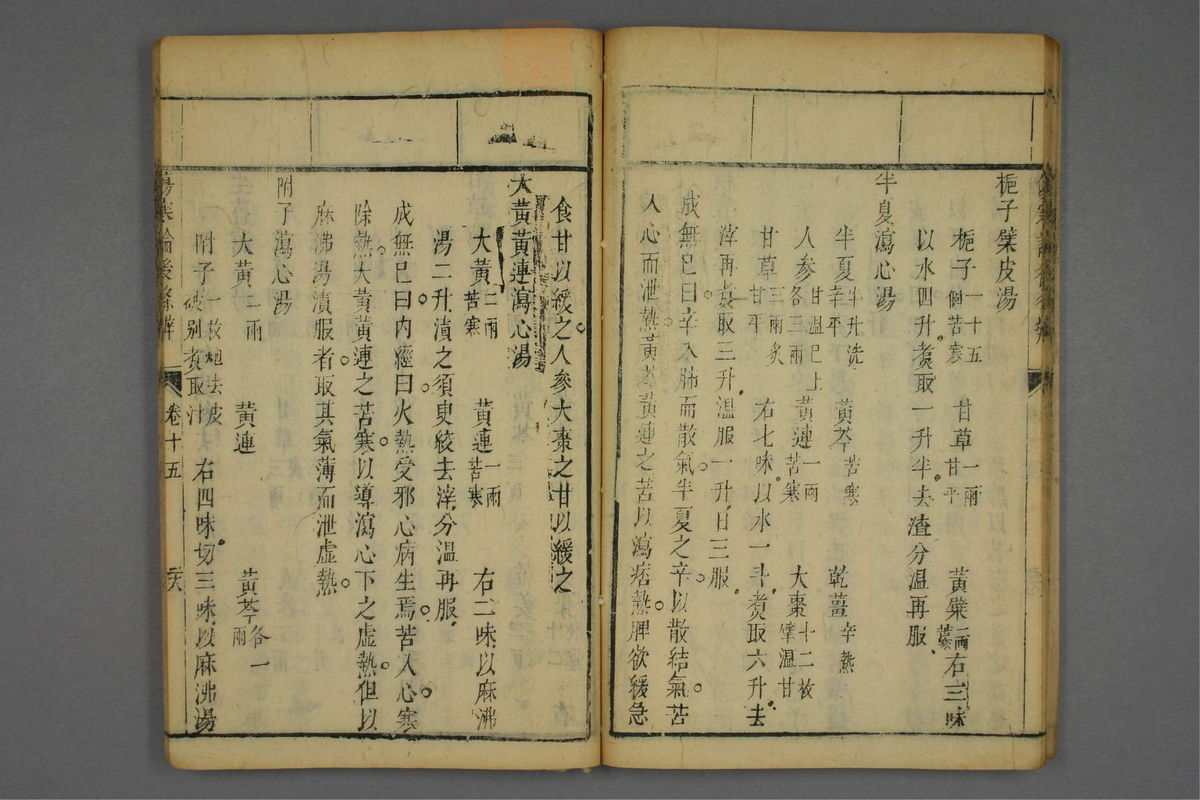 梔子糵皮湯
梔子一十五個苦寒 甘草一兩甘平 黃糵二兩苦寒 右三味
以水四升煑取一升半去渣分溫再服
半夏瀉心湯
半夏半升洗辛平 黃芩苦寒 乾薑辛熱
人參甘溫已上各三兩 黃連一兩苦寒 大棗十二枚擘溫甘
甘草三兩炙甘平 右七味以水一斗煑取六升去
滓再煑取三升溫服一升日三服
成無已曰辛入肺而散氣半夏之辛以散結氣苦
入心而泄熱黃芩黃連之苦以瀉痞熱脾欲緩急
食甘以緩之人參大棗之甘以緩之
大黃黃連瀉心湯
大黃二兩苦寒 黃連一兩苦寒 右二味以麻沸
湯二升漬之須臾絞去滓分溫再服
成無已曰內經曰火熱受邪心病生焉苦入心寒
除熱大黃黃連之苦寒以導瀉心下之虛熱但以
麻沸湯漬服者取其氣薄而泄虛熱
附子瀉心湯
大黃二兩 黃連 黃芩各一兩
附子一枚炮去皮破別煑取汁 右四味切三味以麻沸湯
傷寒論後條辨 卷十五 六